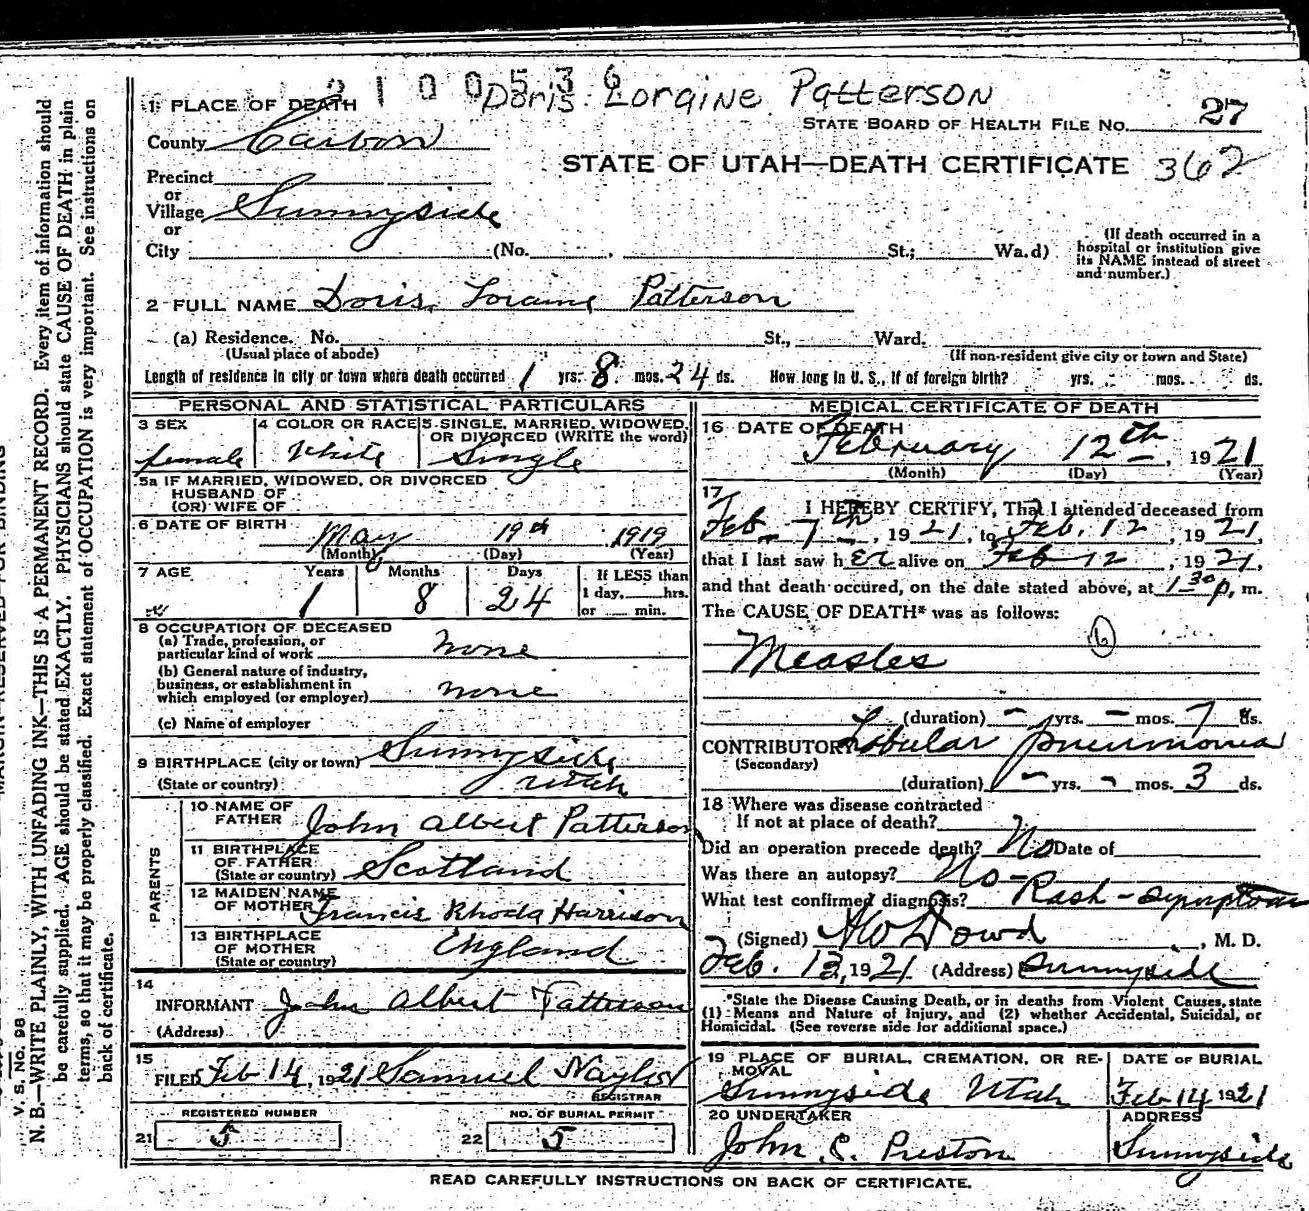 2100536
Doris Loraine Patterson
1 PLACE OF DEATH
STATE BOARD OF HEALTH FILE No. 27
County Carbon
STATE OF UTAH—DEATH CERTIFICATE 362
Precinct
or
Village Sunnyside
or
City (No. , St.; Wa.d)
(If death occurred in a
hospital or institution give
its NAME instead of street
and number.)
2 FULL NAME Doris Loraine Patterson
(a) Residence. No. St., Ward.
(Usual place of abode) (If non-resident give city or town and State)
Length of residence in city or town where death occurred 1 yrs. 8 mos. 24 ds. How long in U. S., if of foreign birth? yrs. mos. ds.
PERSONAL AND STATISTICAL PARTICULARS
3 SEX
female
4 COLOR OR RACE
White
5 SINGLE, MARRIED, WIDOWED,
OR DIVORCED (WRITE the word)
Single
5a IF MARRIED, WIDOWED, OR DIVORCED
HUSBAND OF
(OR) WIFE OF
6 DATE OF BIRTH
May 19th 1919
(Month) (Day) (Year)
7 AGE Years Months Days If LESS than
1 day, hrs.
1 8 24 or min.
8 OCCUPATION OF DECEASED
(a) Trade, profession, or
particular kind of work none
(b) General nature of industry,
business, or establishment in
which employed (or employer) none
(c) Name of employer
9 BIRTHPLACE (city or town) Sunnyside
(State or country) Utah
PARENTS
10 NAME OF
FATHER John Albert Patterson
11 BIRTHPLACE
OF FATHER
(State or country) Scotland
12 MAIDEN NAME
OF MOTHER Francis Rhoda Harrison
13 BIRTHPLACE
OF MOTHER
(State or country) England
14
INFORMANT John Albert Patterson
(Address)
15
FILED Feb 14, 1921 Samuel Naylor
REGISTRAR
REGISTERED NUMBER NO. OF BURIAL PERMIT
21 5 22 5
MEDICAL CERTIFICATE OF DEATH
16 DATE OF DEATH
February 12th, 1921
(Month) (Day) (Year)
17
I HEREBY CERTIFY, That I attended deceased from
Feb 7th, 1921, to Feb. 12, 1921,
that I last saw her alive on Feb 12, 1921,
and that death occured, on the date stated above, at 1 30 p. m.
The CAUSE OF DEATH* was as follows:
6
Measles
(duration) - yrs. - mos. 7 ds.
CONTRIBUTORY Lobular pneumonia
(Secondary)
(duration) - yrs. - mos. 3 ds.
18 Where was disease contracted
If not at place of death?
Did an operation precede death? No Date of
Was there an autopsy? No-
What test confirmed diagnosis? Rash-symptoms
(Signed) Dowd, M. D.
Feb. 13, 1921 (Address) Sunnyside
*State the Disease Causing Death, or in deaths from Violent Causes, state
(1) Means and Nature of Injury, and (2) whether Accidental, Suicidal, or
Homicidal. (See reverse side for additional space.)
19 PLACE OF BURIAL, CREMATION, OR RE-
MOVAL
Sunnyside Utah
DATE OF BURIAL
Feb 14 1921
20 UNDERTAKER
John C. Preston
ADDRESS
Sunnyside
READ CAREFULLY INSTRUCTIONS ON BACK OF CERTIFICATE.
V. S. No. 98
N. B.—WRITE PLAINLY, WITH UNFADING INK—THIS IS A PERMANENT RECORD. Every item of information should
be carefully supplied. AGE should be stated EXACTLY. PHYSICIANS should state CAUSE OF DEATH in plain
terms, so that it may be properly classified. Exact statement of OCCUPATION is very important. See instructions on
back of certificate.